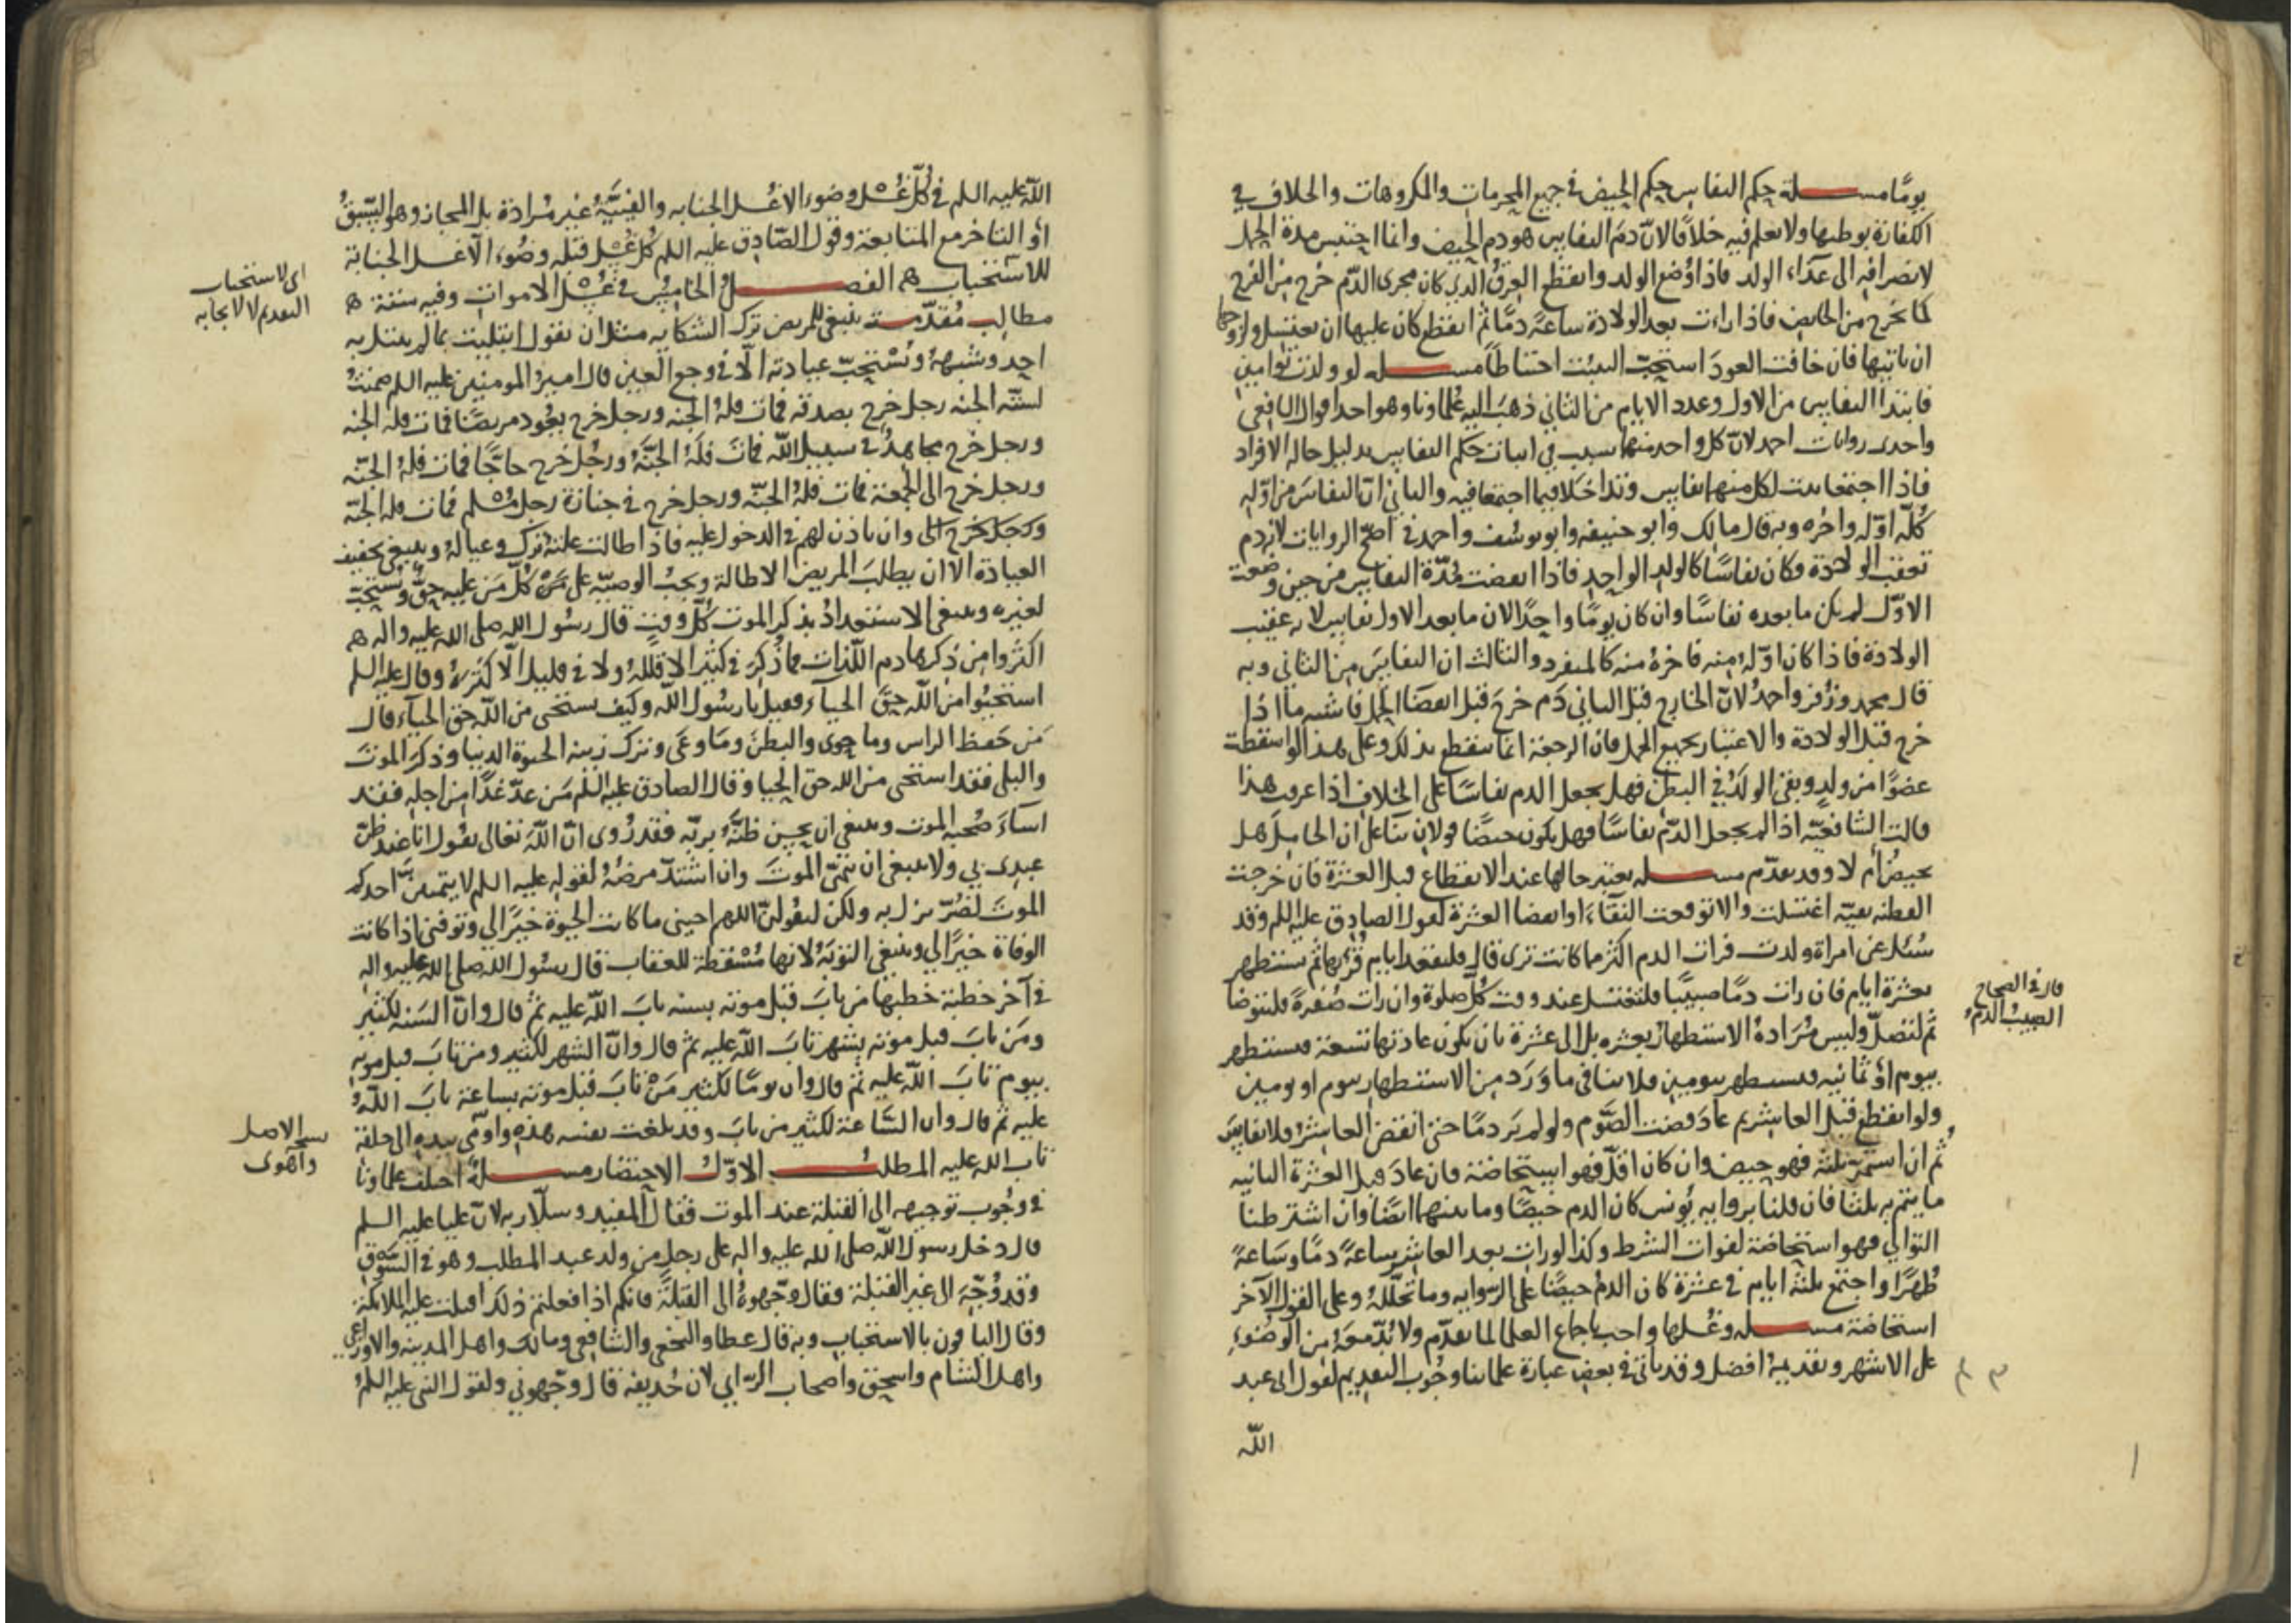 يومًا مسئلة حكم النفاس حكم الحيض في جميع المحرمات والمكروهات والخلاف في
الكفارة بوطيها ولا نعلم فيه خلافًا لانّ دم النفاس هو دم الحيض وانما احتبس مدة الحمل
لانصرافه الى غذاء الولد فاذا وُضع الولد وانقطع العِرقُ الذي كان مجرى الدّم خرج من الفرج
كما يخرج من الحايض فاذا رات بعد الولادة ساعةً دمًا ثم انقطع كان عليها ان تغتسل ولزوجها
ان ياتيها فان خافت العودَ استحبّ التثبت احتياطًا مسئلة لو ولدت توامين
فابتدا النفاس من الاول وعدد الايام من الثاني ذهب اليه علماونا وهو احد اقوال الشافعي
واحدى روايات احمد لانّ كل واحد منهما سبب في اثبات حكم النفاس بدليل حالة الافراد
فاذا اجتمعا ثبت لكل منهما نفاس وتداخلا فيما اجتمعا فيه والثاني انّ النفاسَ من اوّلهِ
كُلّه اوّله واخره وبه قال مالك وابو حنيفه وابو يوسُف واحمد في اصحّ الروايات لانه دم
تعقب الولادة فكان نفاسًا كالولد الواحد فاذا انقضت مُدّة النفاس من حين وضعت
الاوّل لم يكن ما بعده نفاسًا وان كان يومًا واحدًا لان ما بعد الاول نفاس لانه عقيب
الولادة فاذا كان اوّلهُ منه فاخرهُ منه كالمنفرد والثالث ان النفاسَ من الثاني وبه
قال محمد وزُفر واحمدُ لانّ الخارج قبل الثاني دَم خرجَ قبل انقضا الحمل فاشبه ما اذا
خرج قبل الولادة والاعتبار بجميع الحمل فان الرجعة انما تنقطع بذلك وعلى هذا لو اسقطت
عضوًا من ولدٍ وبقي الولدُ في البطن فهل يجعل الدم نفاسًا على الخلاف اذا عرفت هذا
قالت الشافعيّه اذا لم يجعل الدّم نفاسًا فهل يكون حيضًا قولان بنآ على ان الحاملَ هل
تحيضُ أم لا وقد تقدّم مسئلة تعتبر حالها عند الانقطاع قبل العشرة فان خرجت
القطنه نقيّه اغتسلت والا توقعت النقآءَ او انقضا العشرة لقول الصادِق عليه السلم وقد
سُئل عن امراة ولدت فرات الدم اكثر مما كانت ترى قال فلتقعد ايام قُرئها ثم تستظهر
بعشرة ايام فان رات دمًا صبيبًا فلتغتسل عند وقت كُلّ صلوة وان رات صُفرةً فلتتوضا
ثم لتصلّ وليس مُرَادهُ الاستطهار بعشره بل الى عشرة بان يكون عادتها تسعة فتستطهر
بيوم أوْ ثمانيه فتستطهر بيومين فلا ينافي ما وَرَد من الاستطهار بيوم او يومين
ولو انقطع قبل العاشر ثم عادَ قضت الصَّوم ولو لم يَر دمًا حتى انقضى العاشرُ فلا نفاسَ
ثم ان استمرّ ثلثة فهو حيض وان كان اقلّ فهو استحاضة فان عادَ قبل العشرة الثانيه
ما يتم به ثلثا فان قلنا برواية يُونس كان الدم حيضًا وما بينهما ايضًا وان اشترطنا
التوالي فهو استحاضة لفوات الشرط وكذا لو رات بعد العاشر ساعةً دمًا وسَاعةً
طُهرًا واجتمع ثلثة ايام في عشرة كان الدمُ حيضًا على الرّوايه وما تخلّلهُ وعلى القول الآخر
استحاضة مسئلة وغسلها واجب باجماع العلما لما تقدّم ولا بُدّ معهُ من الوُضوءِ
على الاشهر وتقديمهُ افضل وقد ياتي في بعض عبارة علمائنا وجُوب التقديم لقول ابي عبد
الله
قال في الصحاح
الصبيبُ الدّمُ
الله عليه السلم في كُلّ غُسْلٍ وضوء الا غُسل الجنابه والقبليَّةُ غير مُرادة بل المجاز وهو السّبقُ
أوْ التاخر مع المتابعة وقول الصّادِق عليه السلم كُل غُسْل قبله وضُوء الّا غسل الجنابة
للاستحباب ه الفصـل الخامِسُ في غُسْل الاموات وفيه ستة ه
مطالب مُقدّمة ينبغي للمريض ترك الشكايه مثل ان يقول ابتليت بما لم يبتل به
احد وشبههُ ويُستحبّ عيادته الّا في وجع العين قال امير المومنين عليه السلم ضمنتُ
لستّه الجنه رجل خرج بصدقه فمات فلهُ الجنه ورجل خرج يعُود مريضًا فمات فله الجنه
ورجل خرج مجاهدُ في سبيل الله فماتَ فلَهُ الجنّةُ ورجُل خرج حاجًّا فمات فلهُ الجنّه
ورجل خرج الى الجُمعة فمات فلهُ الجنّه ورجل خرج في جنازة رجل مُسْلم فمات فله الجنّة
ورجل خرج الى وان ياذن لهم في الدخول عليه فاذا طالت علته تُرك وعيالهُ وينبغي تخفيف
العيادة الا ان يطلبَ المريض الاطالة ويجبُ الوصيّه على كُلّ مَن عليه حقّ ويُستحبّ
لغيره وينبغي الاستعدادُ بذكر الموت كُلّ وقتٍ قال رسُول الله صلى الله عليه واله ه
اكثروا من ذكر هادم اللّذات فما ذُكرَ في كثير الا قللهُ ولا في قليل الّا كثرهُ وقال عليه السلم
استحيُوا من اللّه حقّ الحيآء فقيل يا رسُول الله وكيف نستحي من اللّه حق الحيآء قال
مَن حفظ الراس وما حوى والبطنَ ومَا وعَى وترك زينه الحيوة الدنيا وذكرَ الموتَ
والبلى فقد استحى من الله حق الحيا وقال الصادق عليه السّلم مَن عدّ غدًا من اجله فقد
اسآءَ صُحبه الموت وينبغي ان يحسن ظنّهُ بربّه فقد رُوى انّ اللّهَ تعالى يقول انا عند ظنّ
عبدي بي ولا ينبغي ان يتمنّى الموتَ وان اشتدّ مرضهُ لقوله عليه السلم لا يتمنينّ احدكم
الموتَ لضُرّ نزل به ولكن ليقولنّ اللهم احيني ما كانت الحيوة خيرًا لي وتوفني اذا كانت
الوفاة خيرًا لي وينبغي التوبَةُ لانها مُسْقطة للعقاب قال رسُول الله صلى الله عليه واله
في آخر خطبة خطبها من تابَ قبل موته بسنه تابَ اللّه عليه ثم قال وانّ السّنه لكثير
ومَن تابَ قبل موته بشهر تابَ اللّه عليه ثم قال وانّ الشهر لكثير ومن تابَ قبل موته
بيوم تابَ اللّه عليه ثم قال وان يومًا لكثير مَنْ تابَ قبل موته بساعة تابَ اللّهُ
عليه ثم قال وان السّاعة لكثير من تابَ وقد بلغت نفسه هذه واومى بيده الى حلقه
تاب الله عليه المطلبُ الاوّلُ الاحتضار مسئلةٌ اختلف علماونا
في وجُوب توجيهه الى القبلة عند الموت فقال المفيد وسلّار به لانّ عليا عليه السلم
قال دخل رسول اللّه صلى الله عليه واله على رجل من ولد عبد المطلب وهو في السَّوْق
وقد وُجّهَ الى غير القبلة فقال وجّهوهُ الى القبلةِ فانكم اذا فعلتم ذلك اقبلت عليه الملائكة
وقال الباقون بالاستحباب وبه قال عطا والنخعي والشافعي ومالك واهل المدينه والاوزاعي
واهل الشام واسحق واصحاب الرّاي لان حُذيفه قال وجّهوني ولقول النبي عليه السلمُ
اي لاستحباب
التقديم لا لايجابه
نسخة الاصل
واهوى